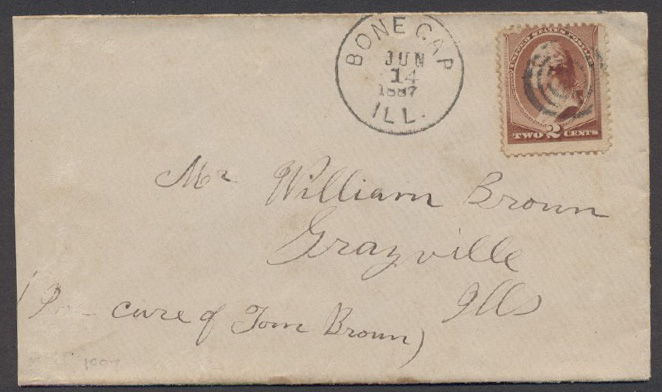 BONE GAP
JUN
14
1887
ILL.
UNITED STATES POSTAGE
TWO 2 CENTS
Mr William Brown
Grayville
Ills
care of Tom Brown)